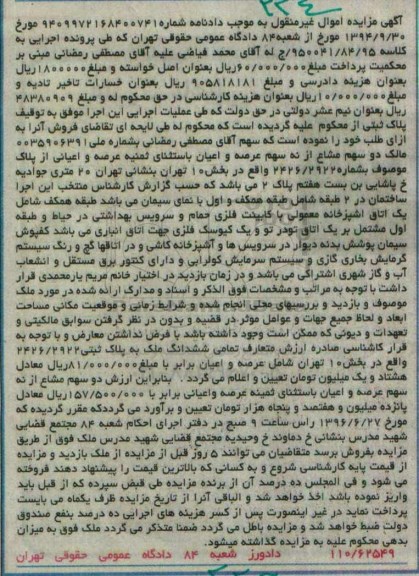 آگهی مزایده اموال غیرمنقول به موجب دادنامه شماره ۹۴۰۹۹۷۲۱۶۸۴۰۰۷۴۱ مورخ
۱۳۹۴/۹/۳۰ مورخ از شعبه ۸۴ دادگاه عمومی حقوقی تهران که طی پرونده اجرایی به
کلاسه ۹۵۰۰۴۱/۸۴/۹۵/ج له آقای محمد فیاضی علیه آقای مصطفی رمضانی مبنی بر
محکمیت پرداخت مبلغ ۶۰/۰۰۰/۰۰۰ ریال بعنوان اصل خواسته و مبلغ ۱۸۰۰۰۰۰ ریال
بعنوان هزینه دادرسی و مبلغ ۹۰۵۸۱۸۱۸۱ ریال بعنوان خسارات تاخیر تادیه و
مبلغ ۱۰/۰۰۰/۰۰۰ ریال بعنوان هزینه کارشناسی در حق محکوم له و مبلغ ۴۸۳۸۰۹۰۹
ریال بعنوان نیم عشر دولتی در حق دولت که طی عملیات اجرایی این اجرا موفق به توقیف
پلاک ثبتی از محکوم علیه گردیده است که محکوم له طی لایحه ای تقاضای فروش آنرا به
ازای طلب خود را نموده است که سهم آقای مصطفی رمضانی بشماره ملی ۰۰۳۵۹۰۶۳۹۱
مالک دو سهم مشاع از نه سهم عرصه و اعیان باستثنای ثمنیه عرصه و اعیانی از پلاک
موصوف بشماره ۲۴۲۶/۲۹۲۲ واقع در بخش ۱۰ تهران بنشانی تهران ۲۰ متری جوادیه
خ پاشایی بن بست هفتم پلاک ۲ می باشد که حسب گزارش کارشناس منتخب این اجرا
ساختمان در ۲ طبقه شامل طبقه همکف و اول با نمای سیمان می باشد طبقه همکف شامل
یک اتاق اشپزخانه معمولی با کابینت فلزی حمام و سرویس بهداشتی در حیاط و طبقه
اول مشتمل بر یک اتاق تودر تو و یک کیوسک فلزی جهت اتاق انباری می باشد کفپوش
سیمان پوشش بدنه دیوار در سرویس ها و آشپزخانه کاشی و در اتاقها گچ و رنگ سیستم
گرمایش بخاری گازی و سیستم سرمایش کولرآبی و دارای کنتور برق مستقل و انشعاب
آب و گاز شهری اشتراکی می باشد و در زمان بازدید در اختیار خانم مریم یارمحمدی قرار
داشت با توجه به مراتب و مشخصات فوق الذکر و اسناد و مدارک ارائه شده در مورد ملک
موصوف و بازدید و بررسیهای محلی انجام شده و شرایط زمانی و موقعیت مکانی مساحت
ابعاد و لحاظ جمیع جهات و عوامل موثر در قضیه و بدون در نظر گرفتن سوابق مالکیتی و
تعهدات و دیونی که ممکن است وجود داشته باشد با فرض نداشتن معارض و با توجه به
قرار کارشناسی صادره ارزش متعارف تمامی ششدانگ ملک به پلاک ثبتی ۲۴۲۶/۲۹۲۲
واقع در بخش ۱۰ تهران شامل عرصه و اعیان برابر با مبلغ ۸۱/۰۰۰/۰۰۰ ریال معادل
هشتاد و یک میلیون تومان تعیین و اعلام می گردد . بنابراین ارزش دو سهم مشاع از نه
سهم عرصه و اعیان باستثنای ثمینه عرصه واعیانی برابر با ۱۵۷/۵۰۰/۰۰۰ ریال معادل
پانزده میلیون و هفتصد و پنجاه هزار تومان تعیین و برآورد می گرددکه مقرر گردیده که
مورخ ۱۳۹۶/۶/۲۷ راس ساعت ۹ صبح در دفتر اجرای احکام شعبه ۸۴ مجتمع قضایی
شهید مدرس بنشانی خ دماوند خ وحیدیه مجتمع قضایی شهید مدرس ملک فوق از طریق
مزایده بفروش برسد متقاضیان می توانند ۵ روز قبل از مزایده از ملک بازدید و مزایده
از قیمت پایه کارشناسی شروع و به کسانی که بالاترین قیمت را پیشنهاد دهند فروخته
می شود و فی المجلس ده درصد آن از برنده مزایده طی قبض سپرده که از قبل باید
واریز نموده باشد اخذ خواهد شد و الباقی آنرا از تاریخ مزایده ظرف یکماه می بایست
پرداخت نماید در غیر اینصورت پس از کسر هزینه های اجرایی ده درصد بنفع صندوق
دولت ضبط خواهد شد و مزایده باطل می گردد ضمنا متذکر می گردد ملک فوق به میزان
بدهی محکوم علیه به مزایده گذاشته میشود.
۱۱۰/۶۲۵۴۹ دادورز شعبه ۸۴ دادگاه عمومی حقوقی تهران